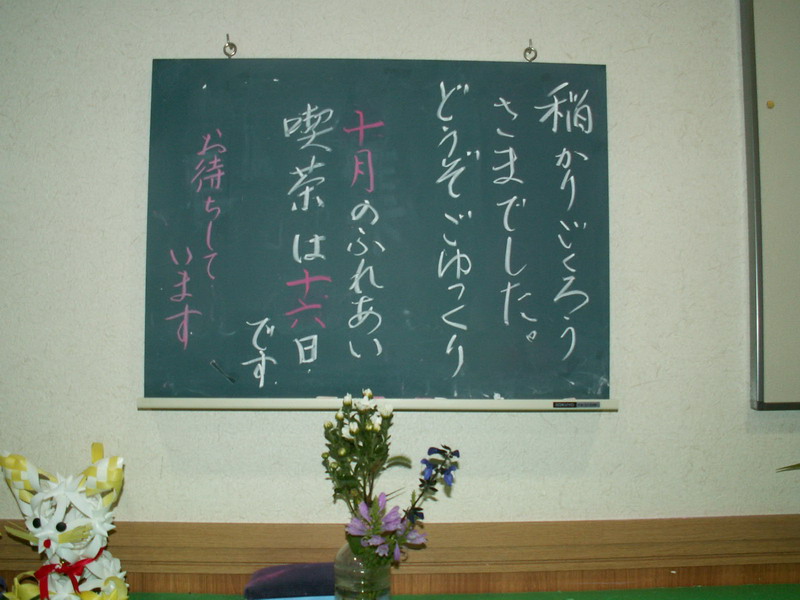 稲かりごくろう
さまでした。
どうぞごゆっくり
十月のふれあい
喫茶は十六日
です
お待ちして
います